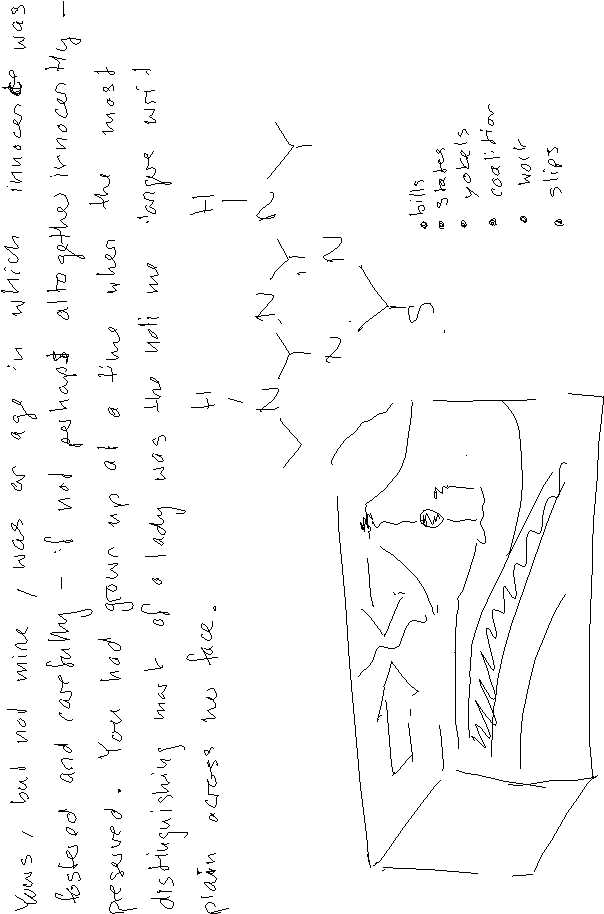 Yours, but not mine, was an age in which innocence was
fostered and carefully – if not perhaps altogether innocently –
preserved. You had grown up at a time when the most
distinguishing mark of a lady was the noli me tangere writ
plain across her face.
H
N
H
N
N
N
N
S
• bills
• states
• yokels
• coalition
• work
• slips